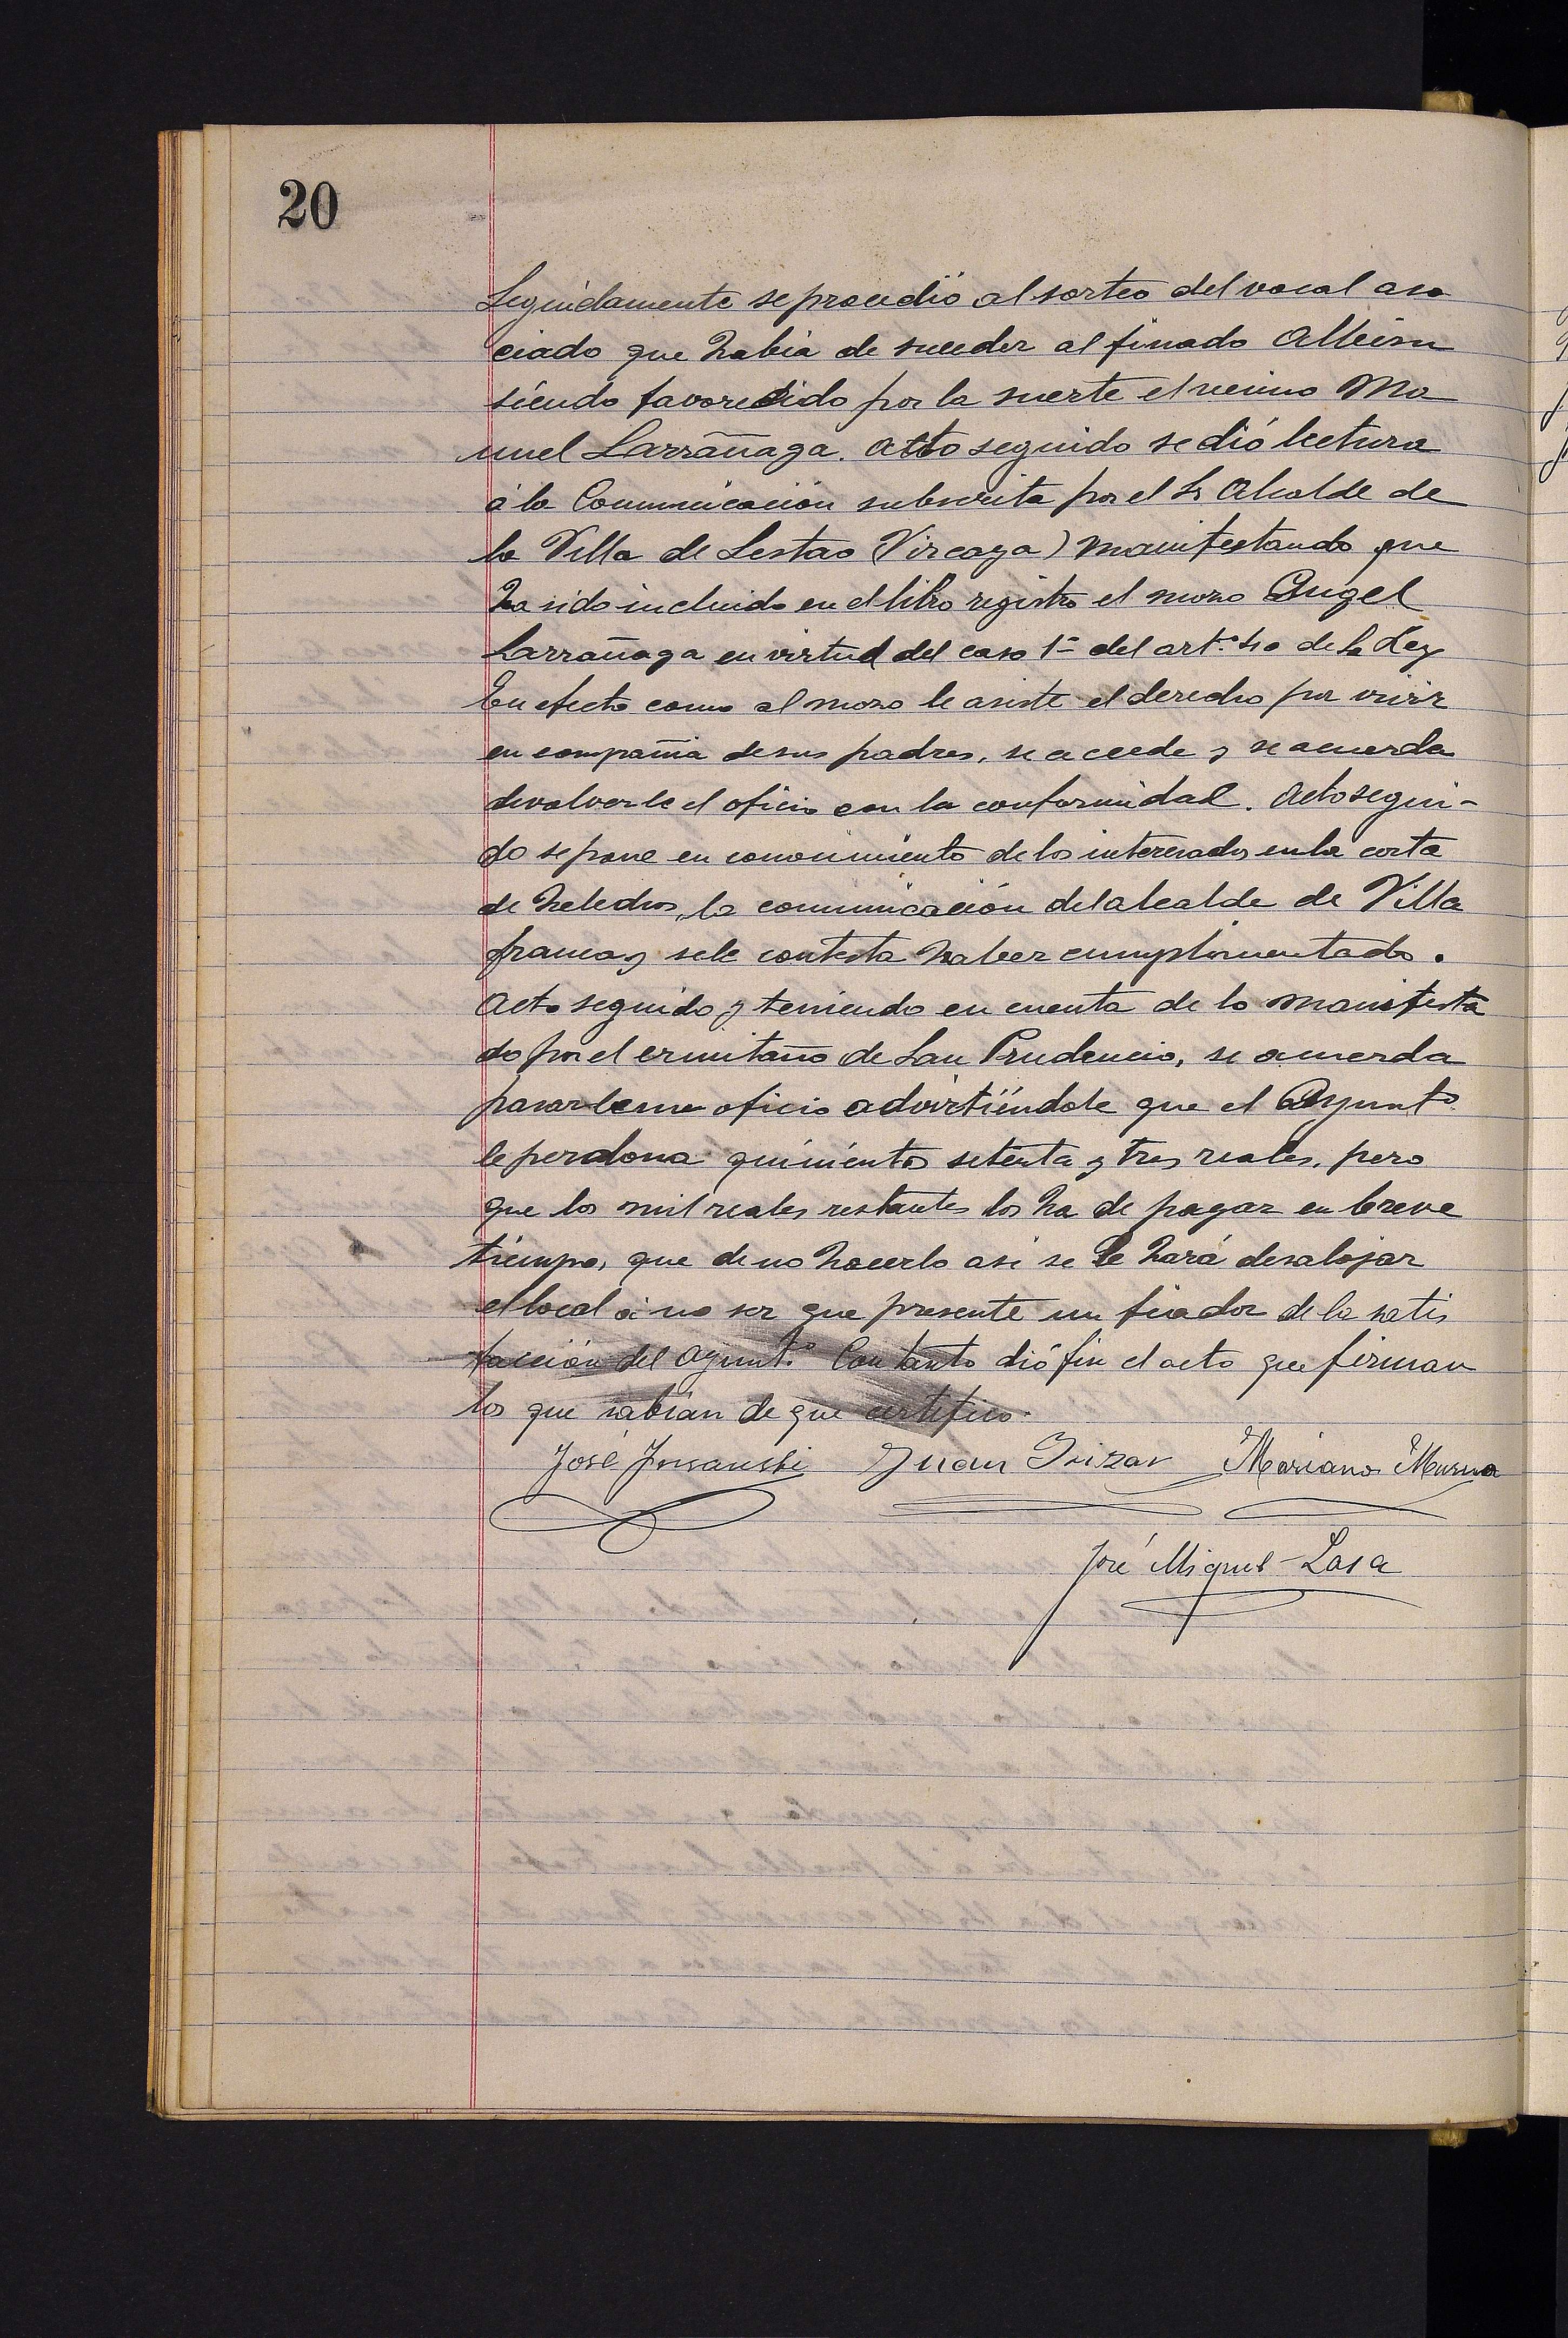 20
Seguidamente se procedió al sorteo del vocal aso
ciado que habia de suceder al finado Albisu
siendo favorecido por la suerte el vecino Ma
nuel Larrañaga. Acto seguido se dió lectura
á la Comunicación subscrita por el Sr Alcalde de
la Villa de Sestao (Vizcaya) manifestando que
ha sido incluido en el libro registro el mozo Angel
Larrañaga en virtud del caso 1º del artº 40 de la Ley
En efecto como al mozo le asiste el derecho por vivir
en compañia de sus padres, se accede y se acuerda
devolverle el oficio con la conformidad. Acto segui-
do se pone en conocimiento de los interesados en la corta
de helechos, la comunicación del alcalde de Villa
franca y se le contesta haber cumplimentado.
Acto seguido y teniendo en cuenta de lo manifesta
do por el ermitaño de San Prudencio, se acuerda
pasarle un oficio advirtiéndole que el Ayuntº
le perdona quinientos setenta y tres reales, pero
que los mil reales restantes los ha de pagar en breve
tiempo, que de no hacerlo asi se le hará desalojar
el local á no ser que presente un fiador de la satis
facción del Ayuntº. Con tanto dió fin el acto que firman
los que sabian de que certifico.
José Juan Irizar Mariano Murua
José Miguel Lasa